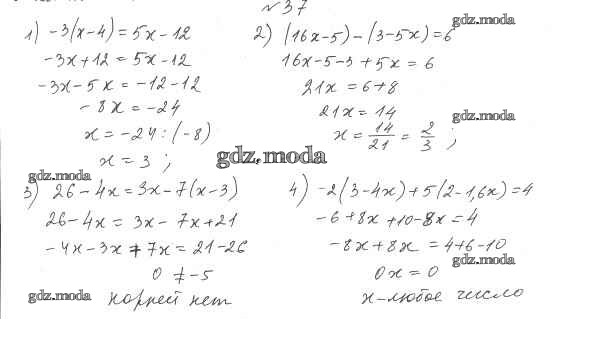 № 37
1) -3(x-4) = 5x-12
-3x+12 = 5x-12
-3x-5x = -12-12
-8x = -24
x = -24 : (-8)
x = 3 ;
2) (16x-5)-(3-5x)=6
16x-5-3+5x = 6
21x = 6+8
21x = 14
x = 14/21 = 2/3 ;
3) 26-4x = 3x-7(x-3)
26-4x = 3x-7x+21
-4x-3x+7x = 21-26
0 ≠ -5
корней нет
4) -2(3-4x)+5(2-1,6x)=4
-6+8x+10-8x=4
-8x+8x = 4+6-10
0x = 0
x-любое число
gdz.moda
gdz.moda
gdz.moda
gdz.moda
gdz.moda
gdz.moda